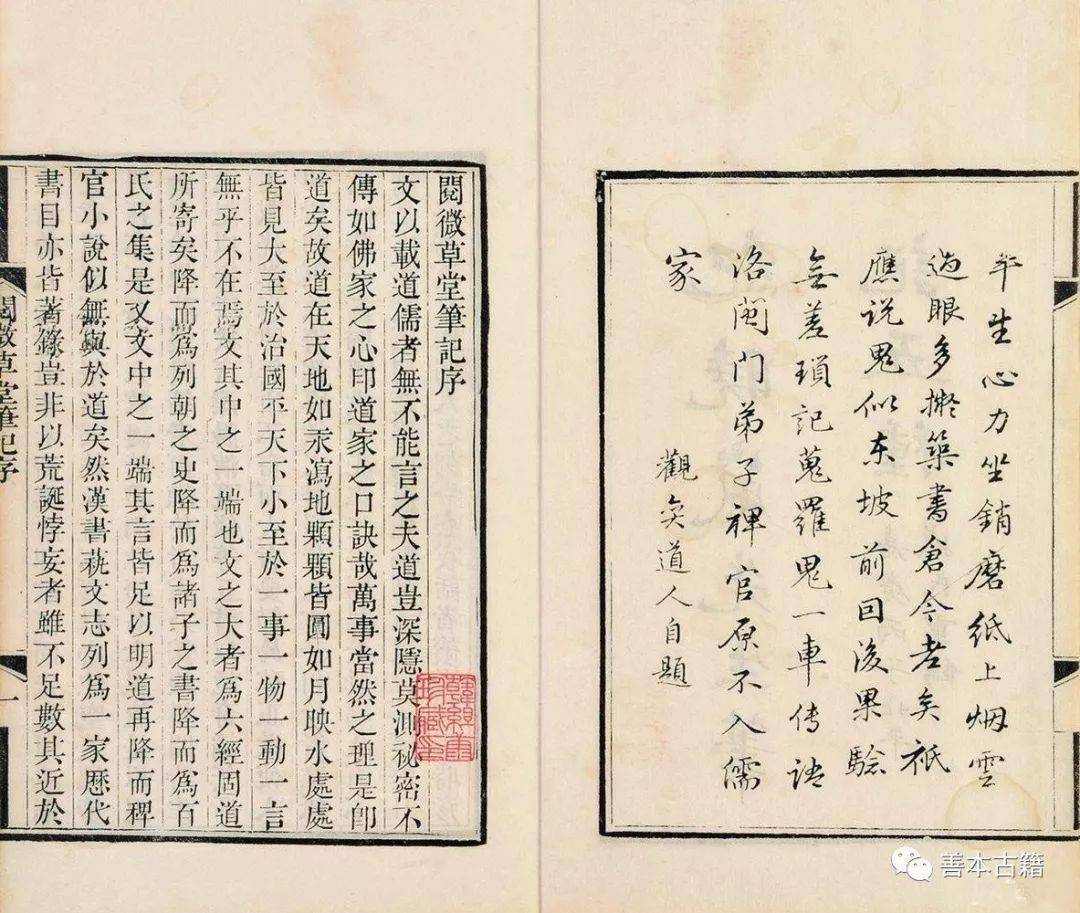 平生心力坐銷磨紙上烟雲
過眼多擬築書倉今老矣祇
應说鬼似东坡前因後果驗
無差瑣記蒐羅鬼一車傳語
洛閩门弟子稗官原不入儒
家
觀奕道人自題
閱微草堂筆記序
文以載道儒者無不能言之夫道豈深隱莫測祕密不
傳如佛家之心印道家之口訣哉萬事當然之理是卽
道矣故道在天地如汞瀉地顆顆皆圓如月映水處處
皆見大至於治國平天下小至於一事一物一動一言
無乎不在焉文其中之一端也文之大者爲六經固道
所寄矣降而爲列朝之史降而爲諸子之書降而爲百
氏之集是又文中之一端其言皆足以明道再降而稗
官小說似無與於道矣然漢書蓺文志列爲一家歷代
書目亦皆著錄豈非以荒誕悖妄者雖不足數其近於
閱微草堂筆記序
一
善本古籍